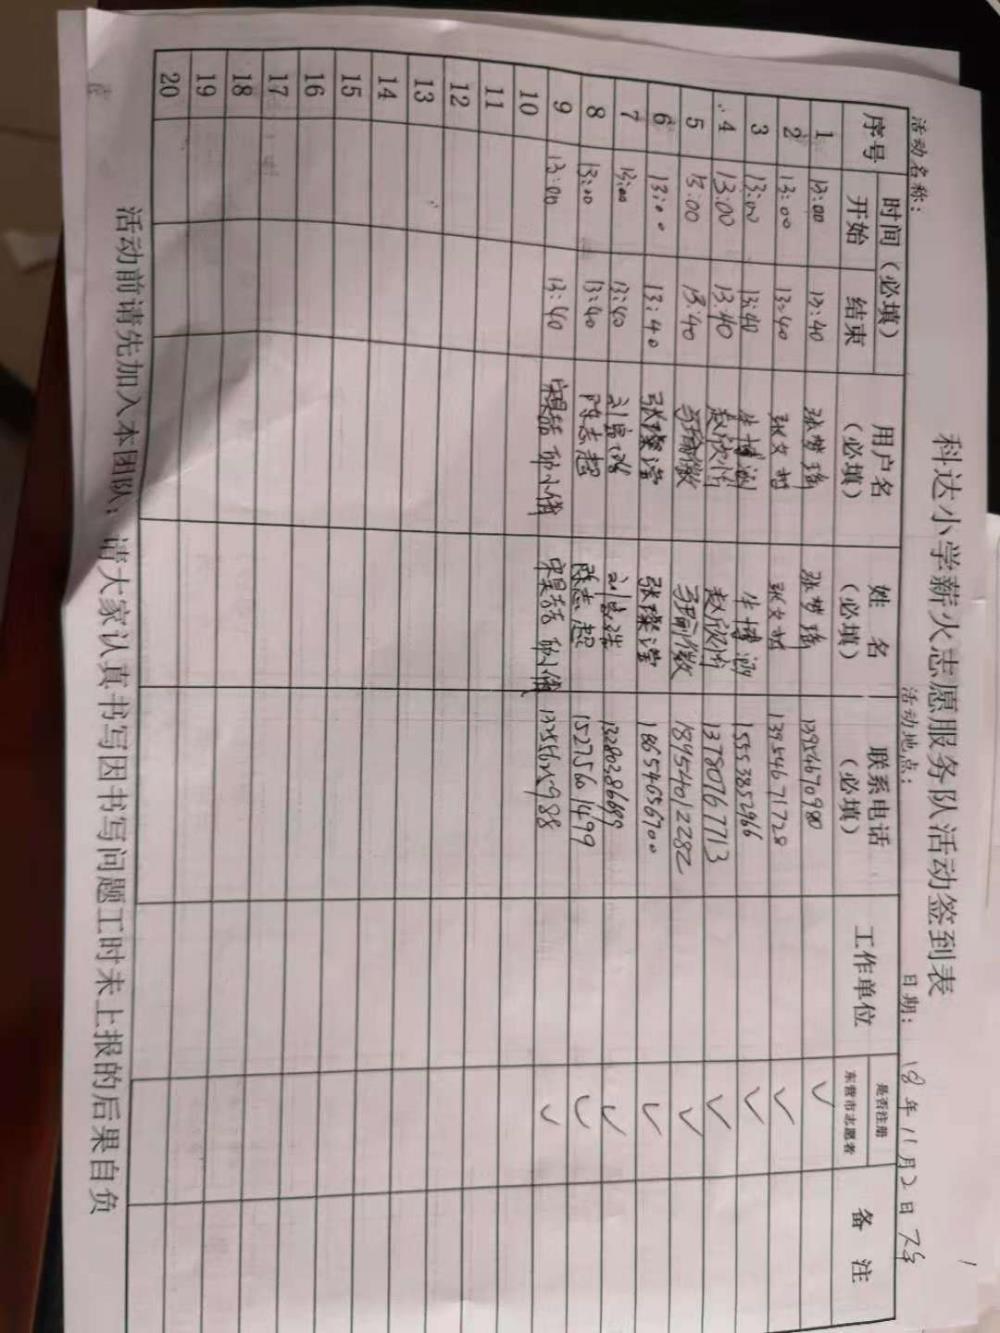 科达小学薪火志愿服务队活动签到表
活动名称： 活动地点： 日期： 18年11月2日
序号 时间（必填） 用户名（必填） 姓 名（必填） 联系电话（必填） 工作单位 是否注册东营市志愿者 备 注
开始 结束
1 13:00 13:40 张梦瑶 张梦瑶 13954670980 ✓
2 13:00 13:40 张文 张文 13954671728 ✓
3 13:00 13:40 牛博涵 牛博涵 15553852966 ✓
4 13:00 13:40 赵欣 赵欣 13780767713 ✓
5 13:00 13:40 ✓
6 13:00 13:40 张璨滢 张璨滢 18654656700 ✓
7 13:00 13:40 ✓
8 13:00 13:40 陈志超 陈志超 15275601499 ✓
9 13:00 13:40 ✓
10
11
12
13
14
15
16
17
18
19
20
活动前请先加入本团队；请大家认真书写因书写问题工时未上报的后果自负